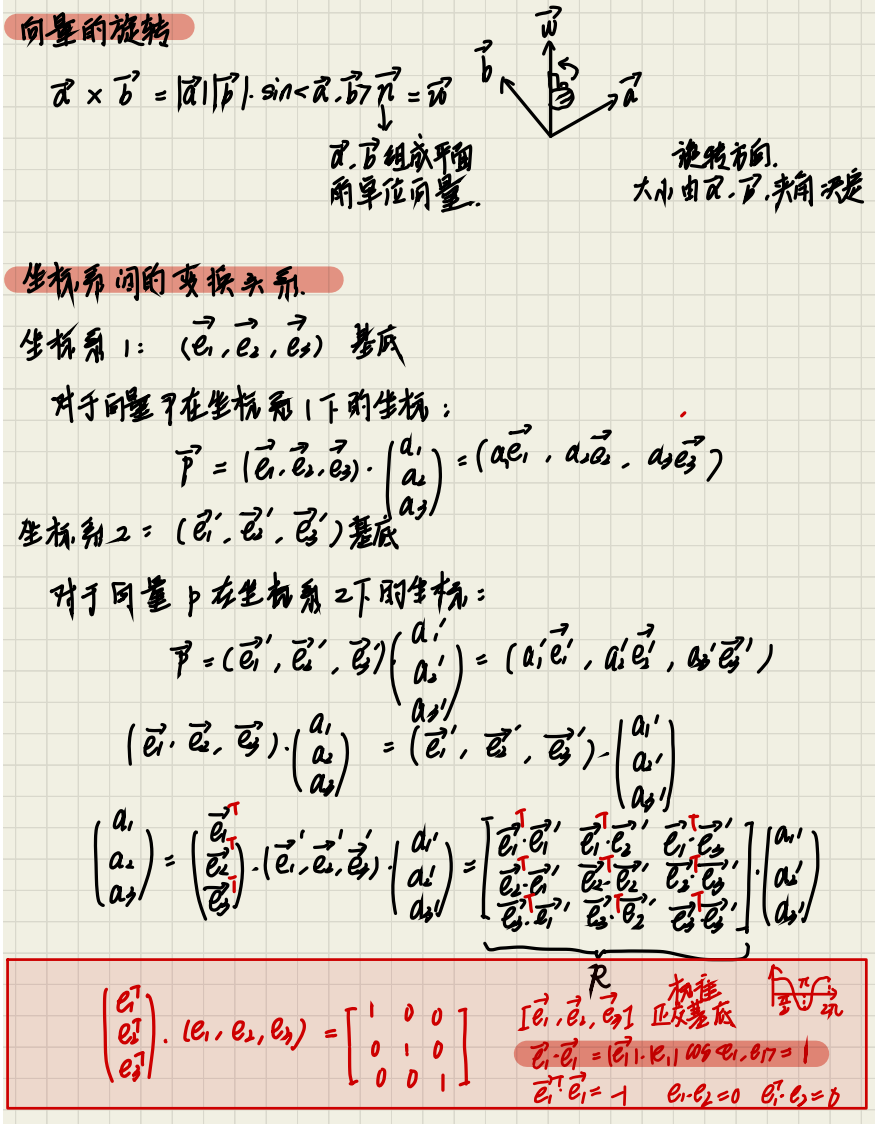 向量的旋转
$\vec{a} \times \vec{b} = |\vec{a}||\vec{b}| \cdot \sin<\vec{a}.\vec{b}> \vec{n} = \vec{w}$
↓
$\vec{a}.\vec{b}$ 组成平面
的单位向量.
$\vec{w}$
$\vec{b}$
$\vec{a}$
旋转方向.
大小由 $\vec{a}.\vec{b}$.夹角决定
坐标系间的变换关系.
坐标系1: $(\vec{e_1}, \vec{e_2}, \vec{e_3})$ 基底
对于向量P在坐标系1下的坐标:
$\vec{P} = (\vec{e_1}, \vec{e_2}, \vec{e_3}) \cdot \begin{pmatrix} a_1 \\ a_2 \\ a_3 \end{pmatrix} = (a_1\vec{e_1}, a_2\vec{e_2}, a_3\vec{e_3})$
坐标系2= $(\vec{e_1}', \vec{e_2}', \vec{e_3}')$ 基底
对于向量p在坐标系2下的坐标:
$\vec{P} = (\vec{e_1}', \vec{e_2}', \vec{e_3}') \cdot \begin{pmatrix} a_1' \\ a_2' \\ a_3' \end{pmatrix} = (a_1'\vec{e_1}', a_2'\vec{e_2}', a_3'\vec{e_3}')$
$(\vec{e_1}, \vec{e_2}, \vec{e_3}) \cdot \begin{pmatrix} a_1 \\ a_2 \\ a_3 \end{pmatrix} = (\vec{e_1}', \vec{e_2}', \vec{e_3}') \cdot \begin{pmatrix} a_1' \\ a_2' \\ a_3' \end{pmatrix}$
$\begin{pmatrix} a_1 \\ a_2 \\ a_3 \end{pmatrix} = \begin{pmatrix} \vec{e_1}^T \\ \vec{e_2}^T \\ \vec{e_3}^T \end{pmatrix} \cdot (\vec{e_1}', \vec{e_2}', \vec{e_3}') \cdot \begin{pmatrix} a_1' \\ a_2' \\ a_3' \end{pmatrix} = \begin{bmatrix} \vec{e_1}^T \cdot \vec{e_1}' & \vec{e_1}^T \cdot \vec{e_2}' & \vec{e_1}^T \cdot \vec{e_3}' \\ \vec{e_2}^T \cdot \vec{e_1}' & \vec{e_2}^T \cdot \vec{e_2}' & \vec{e_2}^T \cdot \vec{e_3}' \\ \vec{e_3}^T \cdot \vec{e_1}' & \vec{e_3}^T \cdot \vec{e_2}' & \vec{e_3}^T \cdot \vec{e_3}' \end{bmatrix} \cdot \begin{pmatrix} a_1' \\ a_2' \\ a_3' \end{pmatrix}$
R
$\begin{pmatrix} e_1^T \\ e_2^T \\ e_3^T \end{pmatrix} \cdot (e_1, e_2, e_3) = \begin{bmatrix} 1 & 0 & 0 \\ 0 & 1 & 0 \\ 0 & 0 & 1 \end{bmatrix}$
$[\vec{e_1}, \vec{e_2}, \vec{e_3}]$ 标准正交基底
$\vec{e_1} \cdot \vec{e_1} = |\vec{e_1}| \cdot |e_1| \cos<e_1, e_1> = 1$
$\vec{e_1}^T \cdot \vec{e_1} = -1$ $e_1 \cdot e_2 = 0$ $e_1^T \cdot e_2 = 0$
π
2π